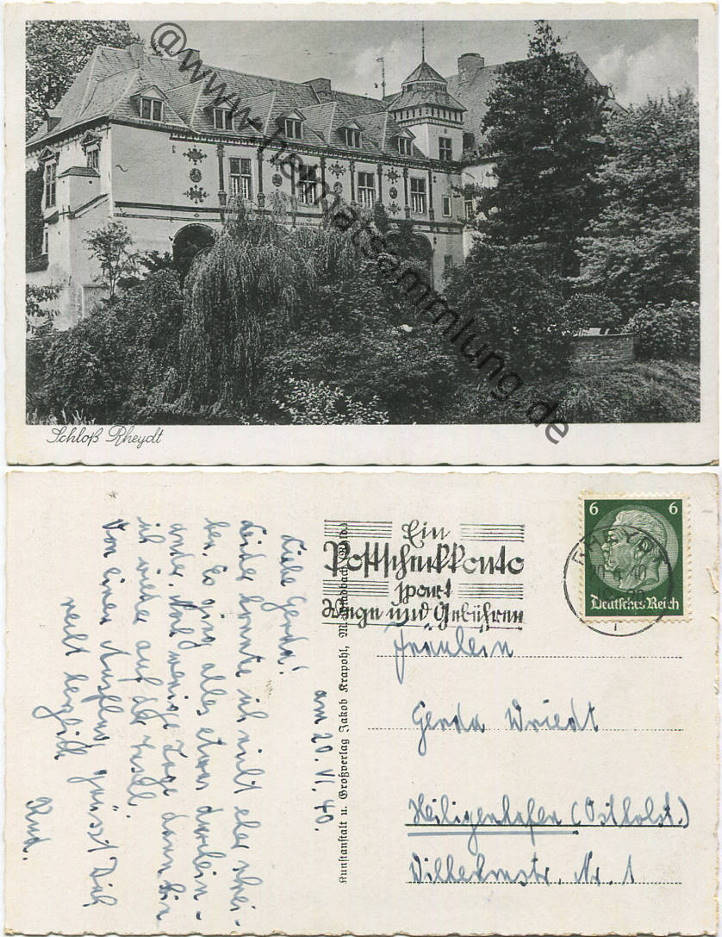 @www.heimatsammlung.de
Schloß Rheydt
Ein
Postscheckkonto
spart
Wege und Gebühren
RHEYDT
6 6
Deutsches Reich
Fräulein
Gerda Wriedt
Heiligenhafen (Ostholst.)
Wilhelmstr. Nr. 1
Kunstanstalt u. Großverlag Jakob Krapohl, M.Gladbach (Rhld.)
am 20. VI. 40.
Liebe Gerda!
Leider konnte ich nicht eher schrei-
ben. Es ging alles etwas durchein-
ander. Nur wenige Tage dann bin
ich wieder auf der Insel.
Von einem Ausflug grüsst Dich
recht herzlich